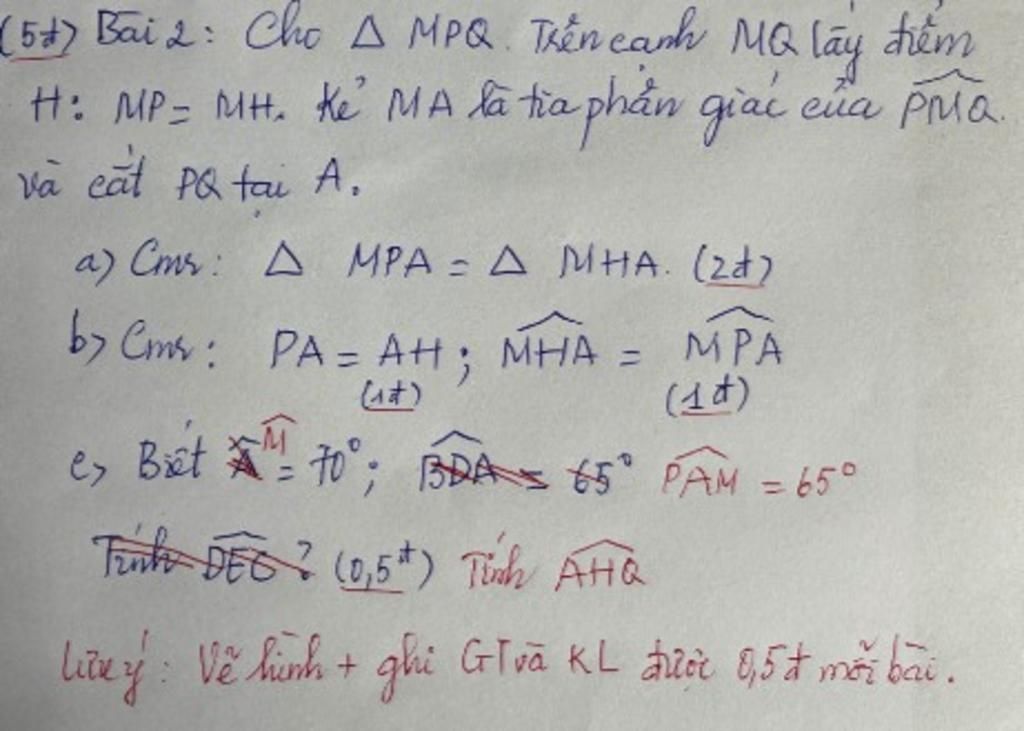 (5đ) Bài 2: Cho Δ MPQ. Trên cạnh MQ lấy điểm
H: MP = MH. Kẻ MA là tia phân giác của PMQ.
và cắt PQ tại A.
a) Cmr: Δ MPA = Δ MHA. (2đ)
b) Cmr: PA = AH; MHA = MPA
(1đ) (1đ)
c) Biết A M = 70°; BDA = 65° PAM = 65°
Tính DEC? (0,5đ) Tính AHQ
Lưu ý: Vẽ hình + ghi GT và KL được 0,5đ mỗi bài.